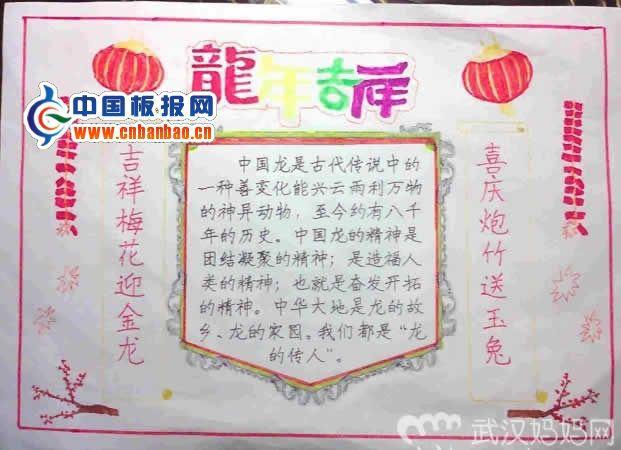 龍年吉祥
中国板报网
www.cnbanbao.cn
吉祥梅花迎金龙
中国龙是古代传说中的
一种善变化能兴云雨利万物
的神异动物，至今约有八千
年的历史。中国龙的精神是
团结凝聚的精神；是造福人
类的精神；也就是奋发开拓
的精神。中华大地是龙的故
乡、龙的家园。我们都是“龙
的传人”。
喜庆炮竹送玉兔
武汉妈妈网